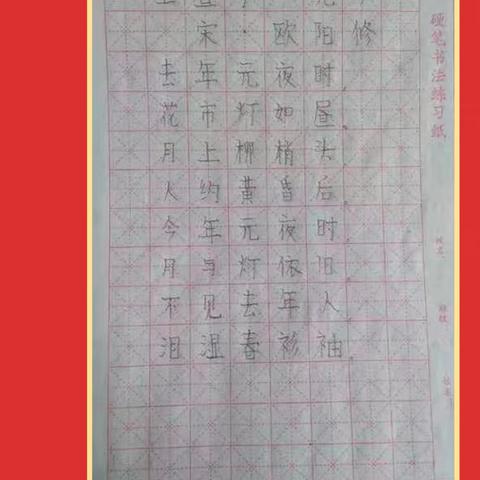 宋·欧阳修
去年元夜时,
花市灯如昼。
月上柳梢头,
人约黄昏后。
今年元夜时,
月与灯依旧。
不见去年人,
泪湿春衫袖。
硬笔书法练习纸